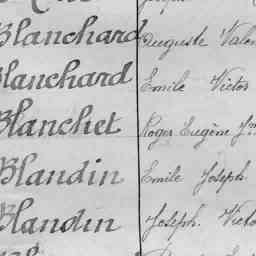 Blanchard Auguste
Blanchard Emile Victor
Blanchet Roger Eugène
Blandin Emile Joseph.
Blandin Joseph.